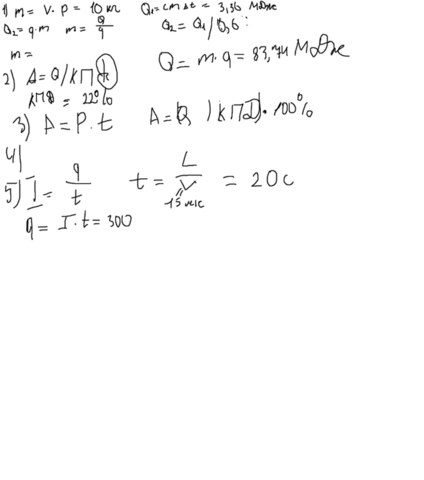 1) m = V · P = 10 кг Q₁ = cm Δt = 3,36 МДж
Q₂ = q · m m = Q/q Q₂ = Q₁ / 0,6
m = Q = m · q = 83,74 МДж
2) A = Q / КПД
КПД = 22%
3) A = P · t A = Q / КПД · 100%
4)
5) I = q/t t = L/V = 20 с
15 м/с
q = I · t = 300